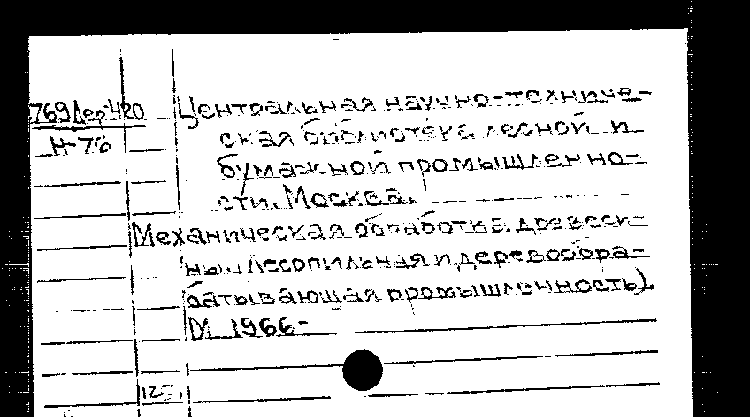 769 Дер-420 Центральная научно-техниче-
Н-76 ская библиотека лесной и
бумажной промышленно-
сти. Москва.
Механическая обработка древеси-
ны (лесопильная и деревообра-
батывающая промышленность).
М. 1966-